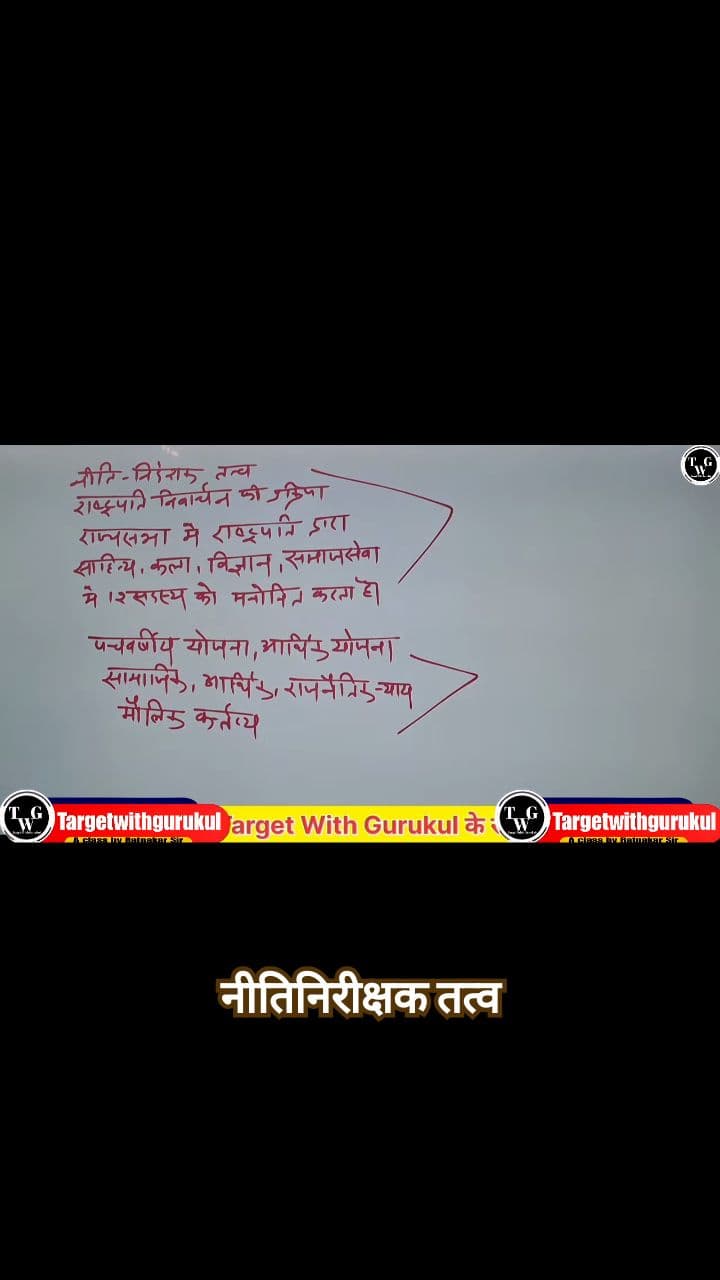 T W G
नीति-निदेशक तत्व
राष्ट्रपति निर्वाचन की प्रक्रिया
राज्यसभा में राष्ट्रपति द्वारा
साहित्य, कला, विज्ञान, समाजसेवा
में 12 सदस्य को मनोनित करता है।
पंचवर्षीय योजना, आर्थिक योजना
सामाजिक, आर्थिक, राजनैतिक न्याय
मौलिक कर्तव्य
T W G Targetwithgurukul
A class by Ratnakar Sir
Target With Gurukul के
T W G Targetwithgurukul
A class by Ratnakar Sir
नीतिनिरीक्षक तत्व